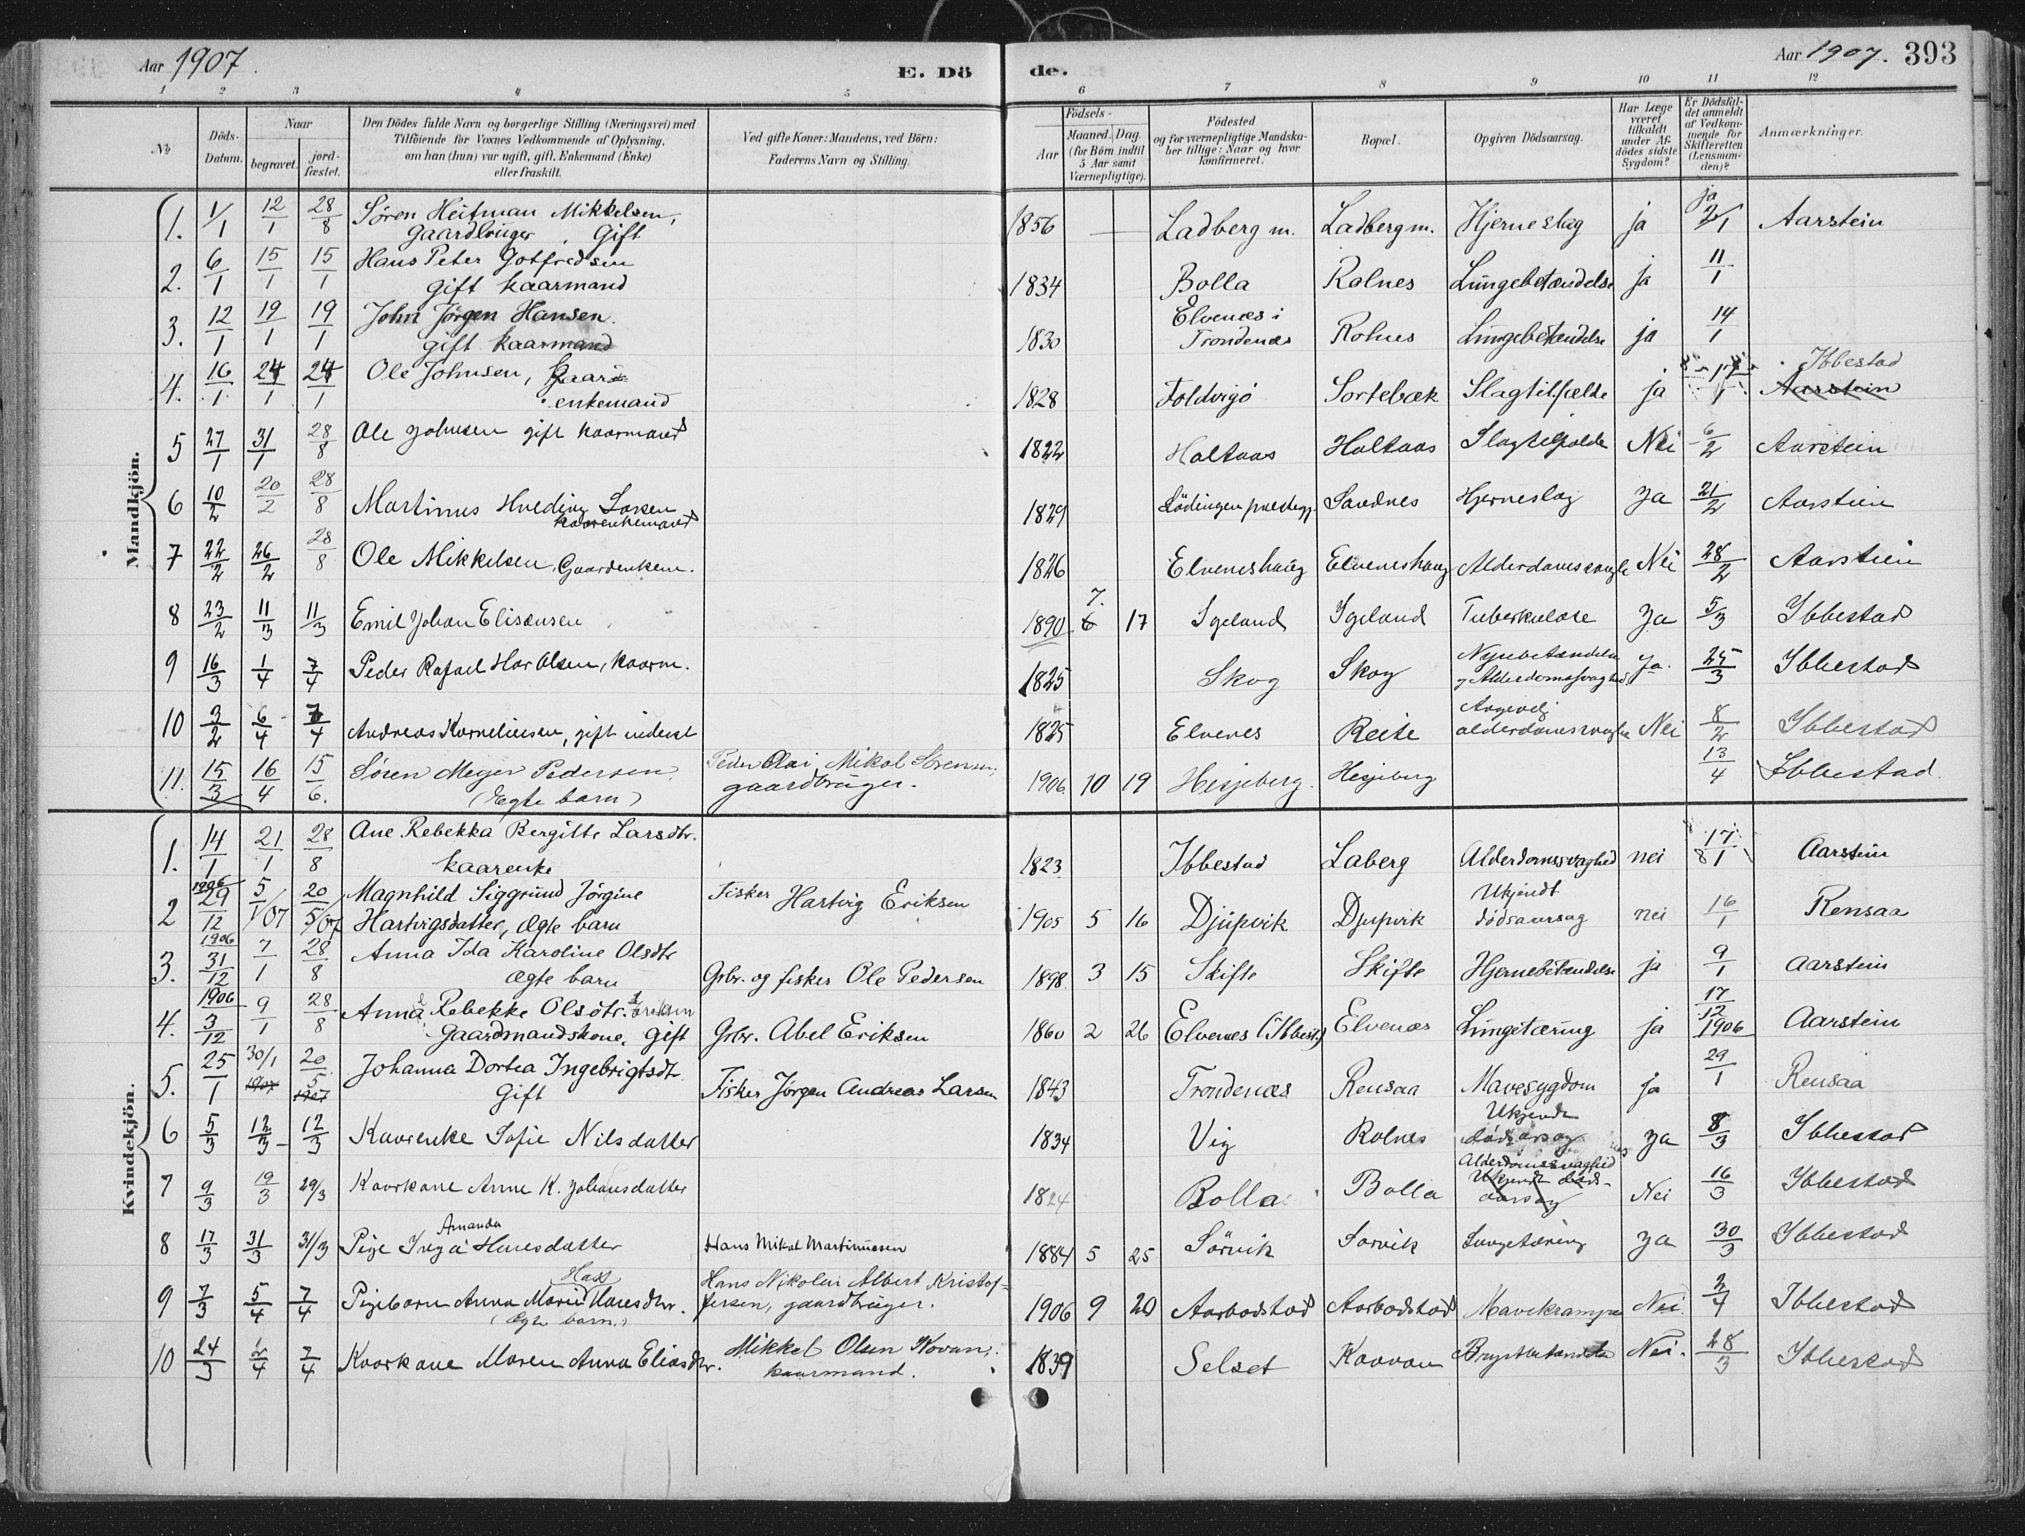 Aar 1907.
E. Dö de.
Aar 1907. 393
1 2 3 4 5 6 7 8 9 10 11 12
№
Döds-Datum.
Naar
begravet.
jord-fæstet.
Den Dödes fulde Navn og borgerlige Stilling (Næringsvei) med
Tilföiende for Voxnes Vedkommende af Oplysning,
om han (hun) var ugift, gift, Enkemand (Enke)
eller fraskilt.
Ved gifte Koner: Mandens, ved Börn:
Faderens Navn og Stilling.
Födsels-
Aar
Maaned. Dag.
(for Börn indtil
5 Aar samt
Værnepligtige).
Födested
og for værnepligtige Mandska-
ber tillige: Naar og hvor
konfirmeret.
Bopæl.
Opgiven Dödsaarsag.
Har Læge
været
tilkaldt
under Af-
dödes sidste
Sygdom?
Er Dödsfal-
det anmeldt
af Vedkom-
mende for
Skifteretten
(Lensman-
den)?
Anmærkninger.
Mandkjön.
1. 1/1 12/1 28/8 Søren Heitman Mikkelsen, 1856 Ladberg m. Ladberg m. Hjerneslag ja ja 2/1 Aarstein
Gaardbruger, Gift
2. 6/1 15/1 15/1 Hans Peter Gotfredsen 1834 Bolla Rolnes Lungebetændelse ja 11/1
gift kaarmand
3. 12/1 19/1 19/1 John Jørgen Hansen 1830 Elvenæs i Trondenæs Rolnes Lungebetændelse ja 14/1
gift kaarmand
4. 16/1 24/1 24/1 Ole Johnsen, Kaar- 1828 Foldvigö Sortebæk Slagtilfælde ja 17/1 Ibbestad Aarstein
enkemand
5 27/1 31/1 28/8 Ole Johnsen gift kaarmand 1822 Holtaas Holtaas Slagtilfælde Nei 6/2 Aarstein
6 10/2 20/2 28/8 Martinus Hveding Larsen 1829 Lödingen prestegj. Sandnes Hjerneslag Ja 21/2 Aarstein
kaarenkemand
7 22/2 26/2 28/8 Ole Mikkelsen Gaardenkem. 1826 Elveneshaug Elveneshaug Alderdomssvaghe Nei 28/2 Aarstein
8 23/2 11/3 11/3 Emil Johan Elisæusen 1890 7. 6 17 Igeland Igeland Tuberkulose Ja 5/3 Ibbestad
9 16/3 1/4 7/4 Peder Rafael Har Olsen, kaarm. 1825 Skog Skog Nyrebetændelse og Alderdomssvaghed Ja. 25/3 Ibbestad
10 3/2 6/4 7/4 Andreas Korneliussen, gift inderst 1825 Elvenes Reite alderdomssvaghe Nei 8/2 Ibbestad
11. 15/3 16/4 15/6. Søren Meyer Pedersen Peder Olai Mikal Sörensen, 1906 10 19 Hesjeberg. Hesjeberg 13/4 Ibbestad.
(Ægte barn) gaardbruger.
Kvindekjön.
1. 14/1 21/1 28/8 Ane Rebekka Bergitte Larsdtr. 1823 Ibbestad Laberg Alderdomssvaghed nei 17/1 Aarstein
kaarenke
2 1906 29/12 5/1 07 20/5 07 Magnhild Siggrund Jörgine Fisker Hartvig Eriksen 1905 5 16 Djupvik Djupvik Ukjendt dödsaarsag nei 16/1 Rensaa
Hartvigsdatter, Ægte barn
3. 1906 31/12 7/1 28/8 Anna Ida Karoline Olsdtr 1898 3 15 Skifte Skifte Hjernebetændelse ja 9/1 Aarstein
Ægte barn Grbr. og fisker Ole Pedersen
4. 1906 3/12 9/1 28/8 Anna Rebekke Olsdtr. Eriksen 1860 2 26 Elvenes (Ibbest.) Elvenæs Lungetæring ja 17/12 1906 Aarstein
Gaardmandskone, Gift Grbr. Abel Eriksen
5. 25/1 30/1 1907 20/5 1907 Johanna Dortea Ingebrigtsdt 1843 Trondenæs Rensaa Mavesygdom ja 29/1 Rensaa
Gift Fisker Jørgen Andreas Larsen
6 5/3 12/3 12/3 Kaarenke Sofie Nilsdatter 1834 Vig Rolnes Ukjendt dödsaarsag Ja 8/3 Ibbestad
7 9/3 19/3 29/3 Kaarkone Anne K. Johansdatter 1824 Bolla Bolla Alderdomssvaghed Ukjendt döds-aarsag Nei 16/3 Ibbestad
8 17/3 31/3 31/3 Pige Inga Amanda Hansdatter Hans Mikal Martinussen 1884 5 25 Sörvik Sorvik Lungetæring Ja 30/3 Ibbestad
9 7/3 5/4 7/4 Pigebarn Anna Marie Hass Hansdtr. Hans Nikolai Albert Kristof- 1906 9 20 Aarbodstad Aarbodstad Mavekrampe Nei. 2/4 Ibbestad
(Ægte barn.) fersen, gaardbruger.
10 24/3 2/4 7/4 Kaarkone Maren Anna Eliasdtr. Mikkel Olsen Kovan, 1839 Selset Kaavan Brystbetændelse Nei. 28/3 Ibbestad
kaarmand.